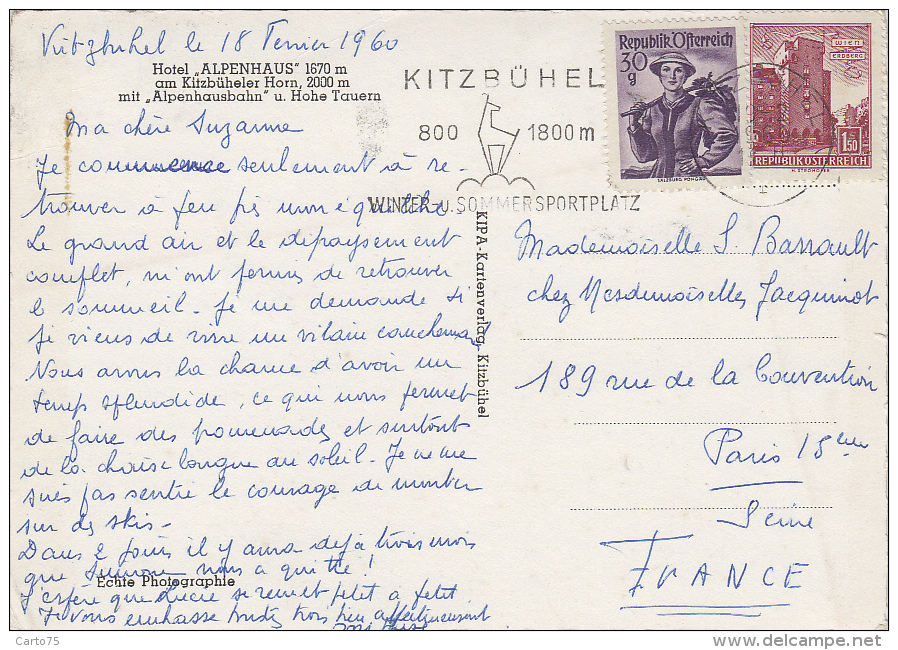 Kitzbuhel le 18 Fevrier 1960
Hotel „ALPENHAUS" 1670 m
am Kitzbüheler Horn, 2000 m
mit „Alpenhausbahn" u. Hohe Tauern
Ma chère Suzanne
Je commence seulement à re-
trouver à peu près mon équilibre.
Le grand air et le dépaysement
complet, m'ont permis de retrouver
le sommeil. Je me demande si
je viens de vivre un vilain cauchemar.
Nous avons la chance d'avoir un
temps splendide, ce qui nous permet
de faire des promenades et surtout
de la chaise longue au soleil. Je ne me
suis pas sentie le courage de monter
sur des skis.
Dans 2 jours il y aura déjà trois mois
que nous a quitté!
Echte Photographie
J'espère que Lucie se remet petit à petit.
Je vous embrasse toutes trois bien affectueusement
KITZBÜHEL
800 1800 m
WINTER- u. SOMMERSPORTPLATZ
Republik Österreich
30 g
SALZBURG PONGAU
WIEN
ERDBERG
1.50
REPUBLIK ÖSTERREICH
KIPA-Kartenverlag, Kitzbühel
Mademoiselle S. Barrault
chez Mesdemoiselles Jacquinot
189 rue de la Convention
Paris 15eme
Seine
FRANCE
Carto75
http://www.delcampe.net